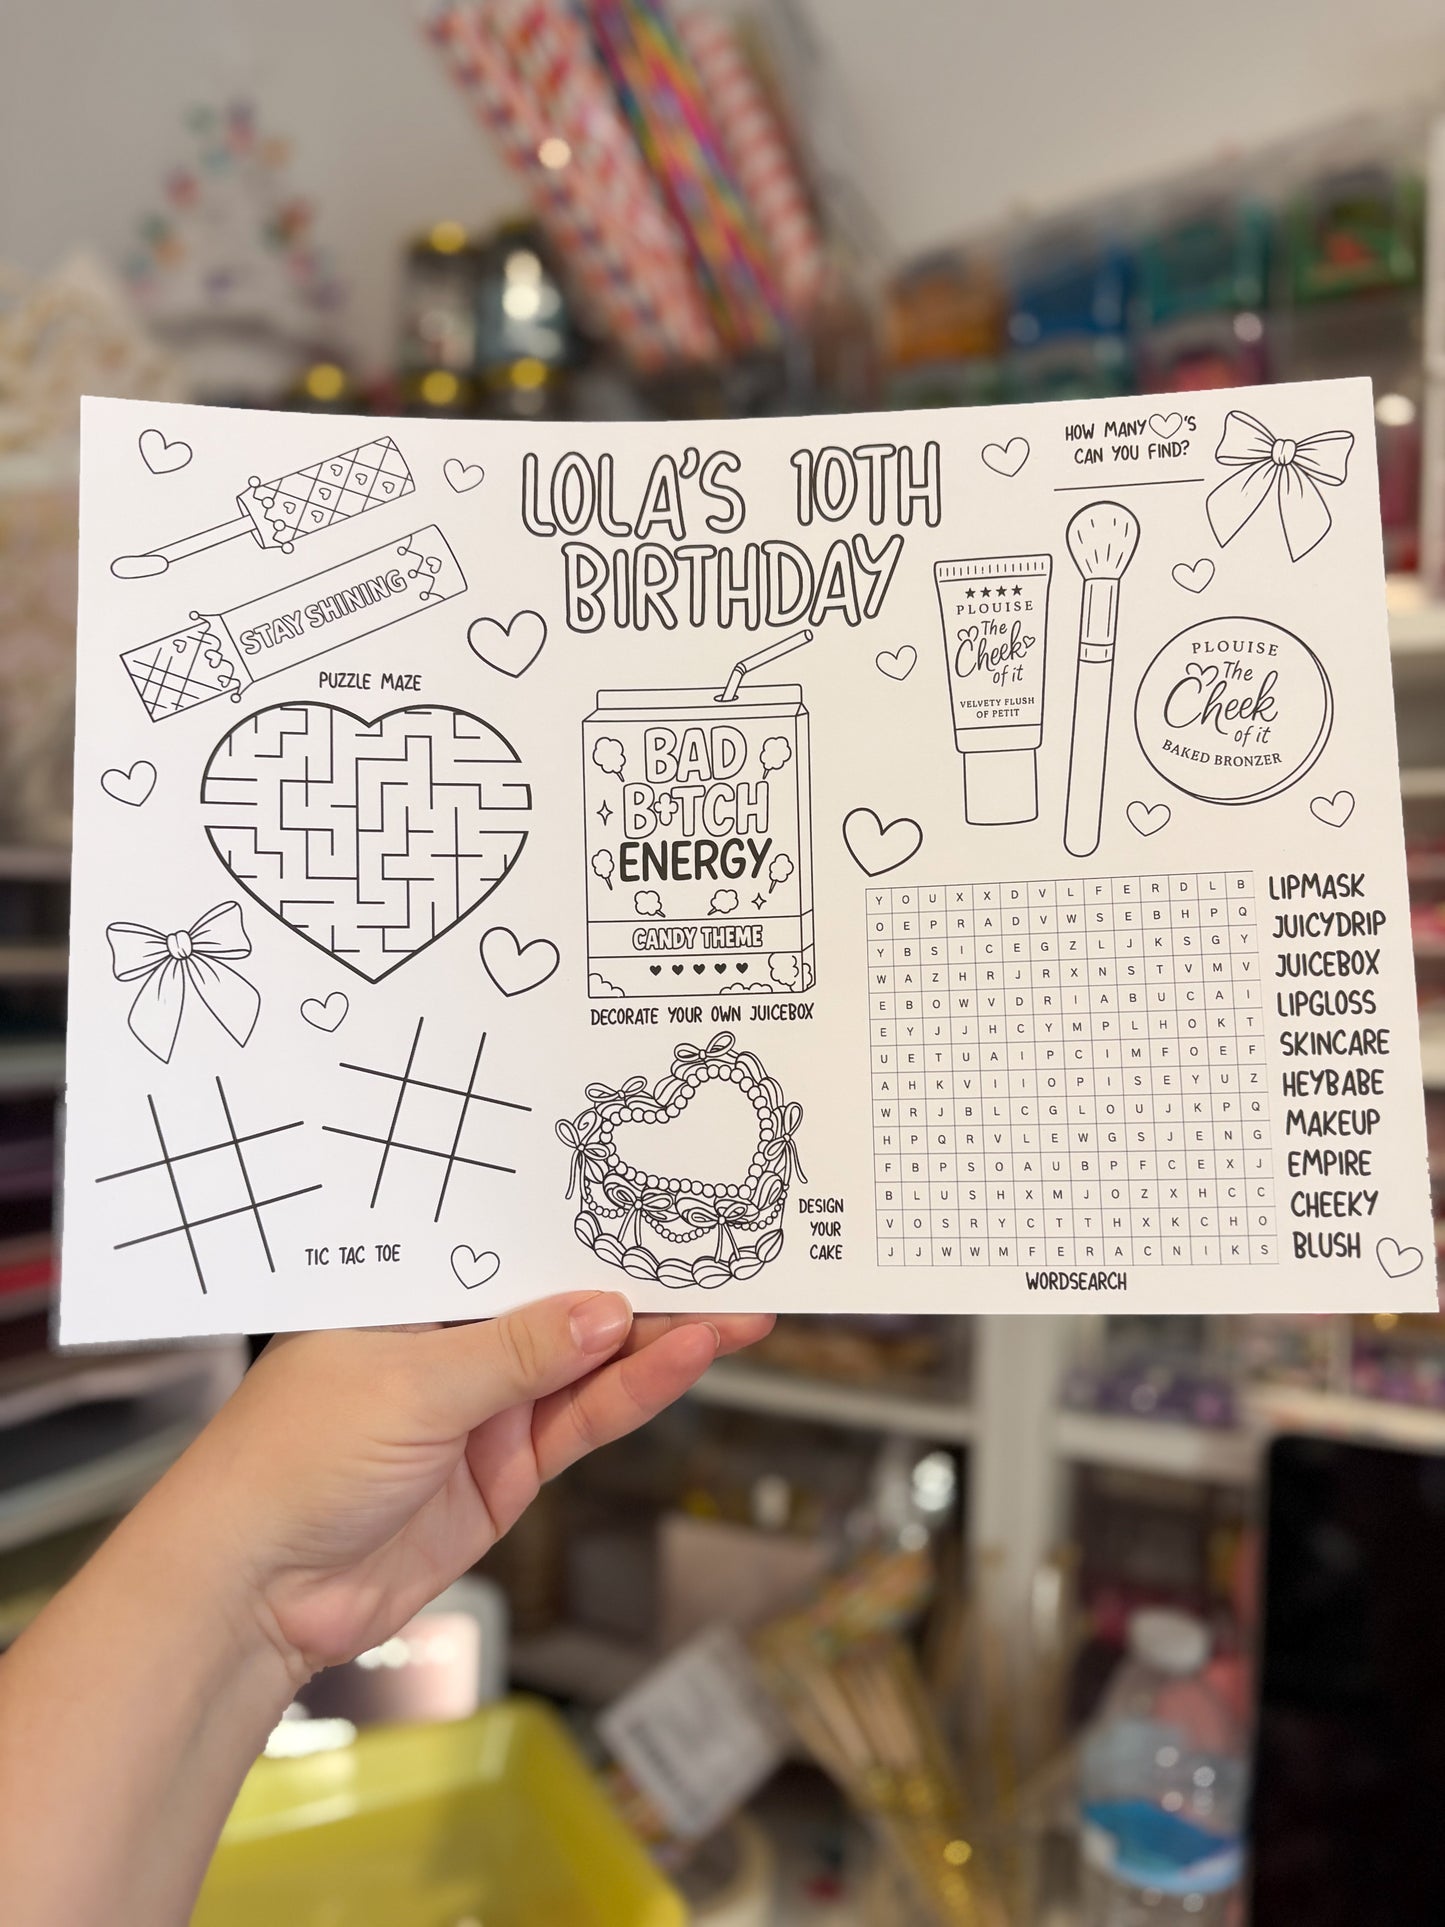 LOLA'S 10TH
BIRTHDAY
HOW MANY 'S
CAN YOU FIND?
STAY SHINING
PUZZLE MAZE
BAD
B*TCH
ENERGY
CANDY THEME
DECORATE YOUR OWN JUICEBOX
PLOUISE
The
Cheek
of it
VELVETY FLUSH
OF PETIT
PLOUISE
The
Cheek
of it
BAKED BRONZER
TIC TAC TOE
DESIGN
YOUR
CAKE
Y O U X X D V L F E R D L B
O E P R A D V W S E B H P Q
Y B S I C E G Z L J K S G Y
W A Z H R J R X N S T V M V
E B O W V D R I A B U C A I
E Y J J H C Y M P L H O K T
U E T U A I P C I M F O E F
A H K V I I O P I S E Y U Z
W R J B L C G L O U J K P Q
H P Q R V L E W G S J E N G
F B P S O A U B P F C E X J
B L U S H X M J O Z X H C C
V O S R Y C T T H X K C H O
J J W W M F E R A C N I K S
LIPMASK
JUICYDRIP
JUICEBOX
LIPGLOSS
SKINCARE
HEYBABE
MAKEUP
EMPIRE
CHEEKY
BLUSH
WORDSEARCH